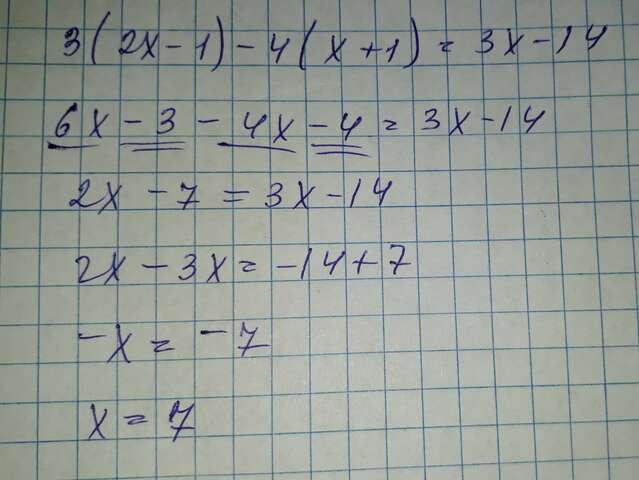 3(2x-1)-4(x+1)=3x-14
6x-3-4x-4=3x-14
2x-7=3x-14
2x-3x=-14+7
-x=-7
x=7